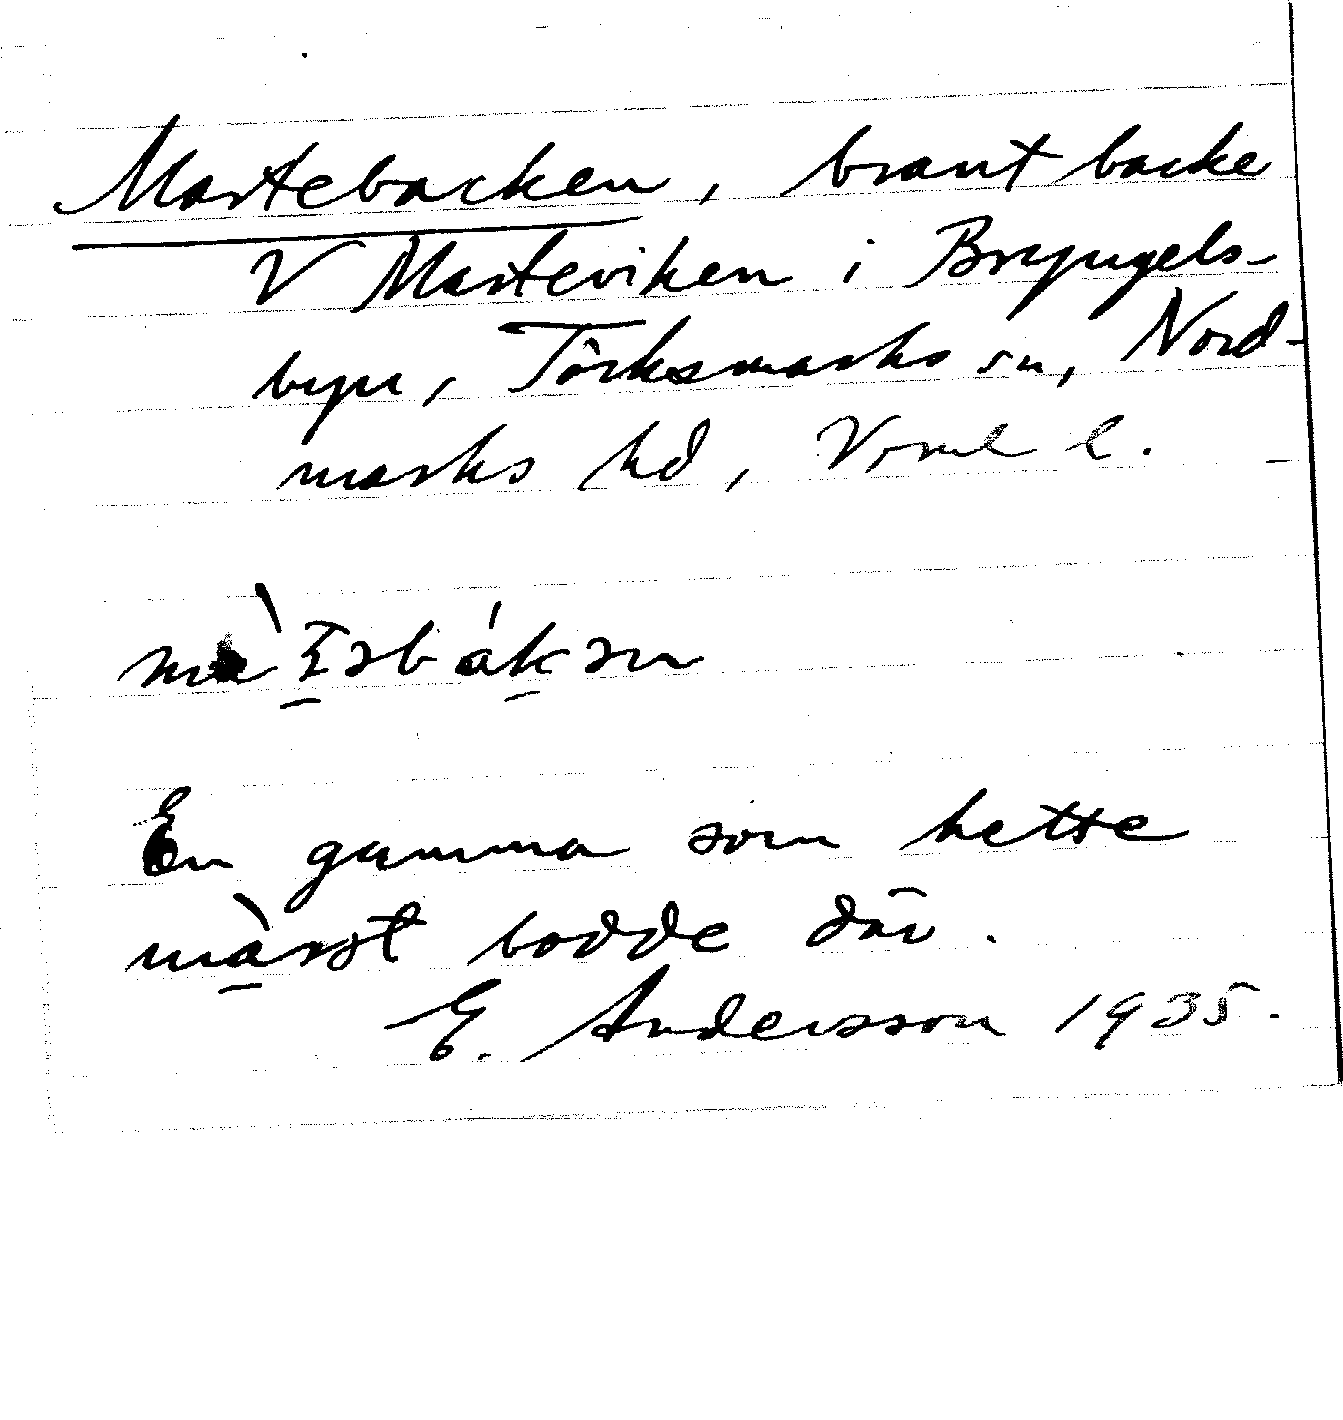 Martebacken, brant backe
V Marteviken i Bryngels-
byn, Töcksmarks sn, Nord-
marks hd, Verml l.
En gumma som hette
bodde där.
E. Andersson 1935.